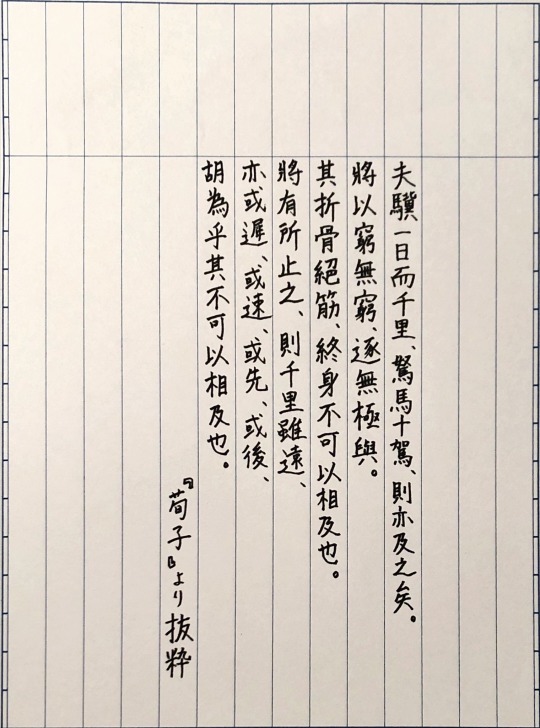 夫驥一日而千里、駑馬十駕、則亦及之矣。
將以窮無窮、逐無極與。
其折骨絕筋、終身不可以相及也。
將有所止之、則千里雖遠、
亦或遲、或速、或先、或後、
胡為乎其不可以相及也。
『荀子』より抜粋